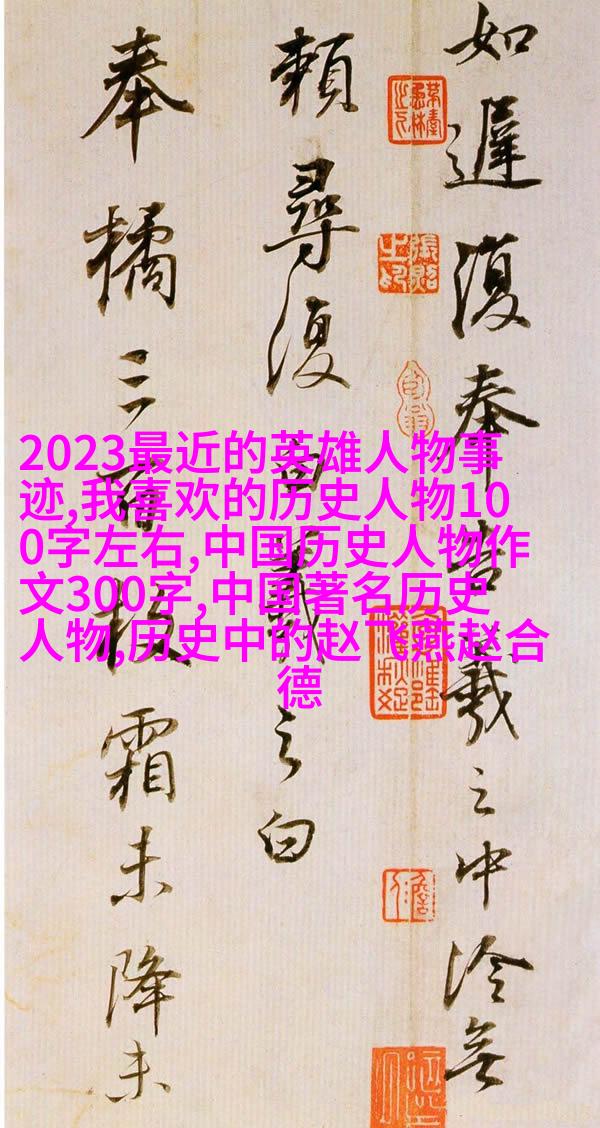 如遲復奉告羲之中冷無
賴尋復白羲之白
奉橘三百枚霜未降未
2023最近的英雄人物事
迹,我喜欢的历史人物10
0字左右,中国历史人物作
文300字,中国著名历史
人物,历史中的赵飞燕赵合
德